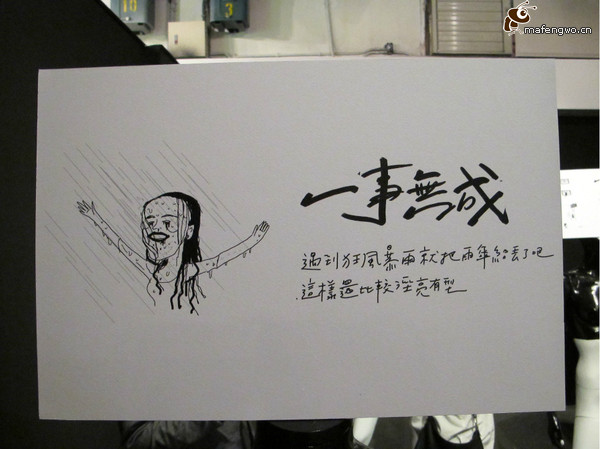 10
3
mafengwo.cn
一事無成
遇到狂風暴雨就把雨傘給丟了吧
這樣還比較亮有型